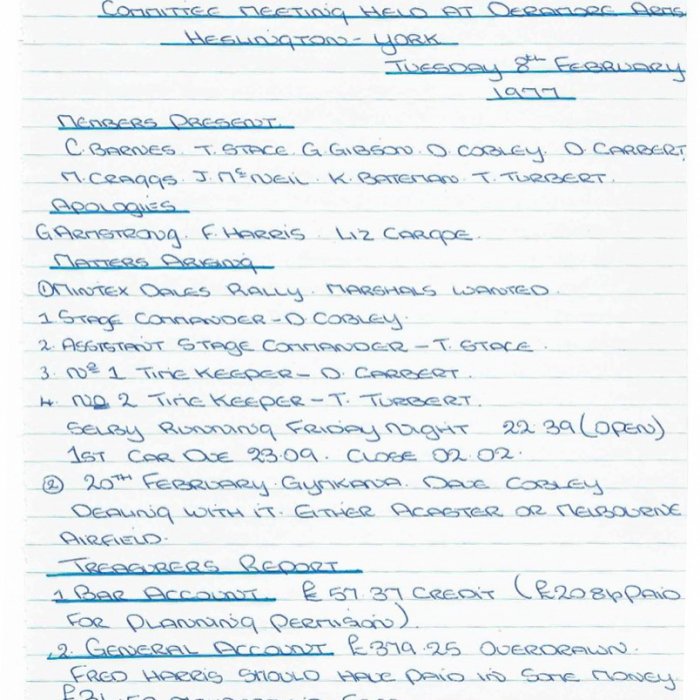 COMMITTEE MEETING HELD AT DERAMORE ARMS
HESLINGTON - YORK
TUESDAY 8th FEBRUARY
1977
MEMBERS PRESENT.
C. BARNES. T. STACE. G. GIBSON. D. COBLEY. D. CARBERT.
M. CRAGGS. J. McNEIL. K. BATEMAN. T. TURBERT.
APOLOGIES
G ARMSTRONG. F. HARRIS. LIZ CARGOE.
MATTERS ARISING
① MINTEX DALES RALLY. MARSHALS WANTED.
1 STAGE COMMANDER - D. COBLEY.
2. ASSISTANT STAGE COMMANDER - T. STACE.
3. No 1 TIME KEEPER - D. CARBERT.
4. No 2 TIME KEEPER - T. TURBERT.
SELBY RUNNING FRIDAY NIGHT 22.39 (OPEN)
1ST CAR DUE 23.09. CLOSE 02.02.
② 20TH FEBRUARY. GYMKANA. DAVE COBLEY
DEALING WITH IT. EITHER ACASTER OR MELBOURNE
AIRFIELD.
TREASURERS REPORT
1 BAR ACCOUNT £57.37 CREDIT (£208p PAID
FOR PLANNING PERMISION).
2. GENERAL ACCOUNT £379.25 OVERDRAWN.
FRED HARRIS SHOULD HAVE PAID IN SOME MONEY